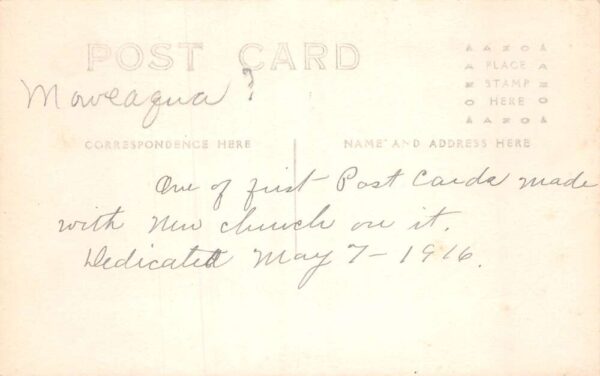 POST CARD
Moweaqua?
▲ A Z O ▲
PLACE
STAMP
HERE
▲ A Z O ▲
CORRESPONDENCE HERE
NAME AND ADDRESS HERE
One of first Post Cards made
with new church on it.
Dedicated May 7 - 1916.